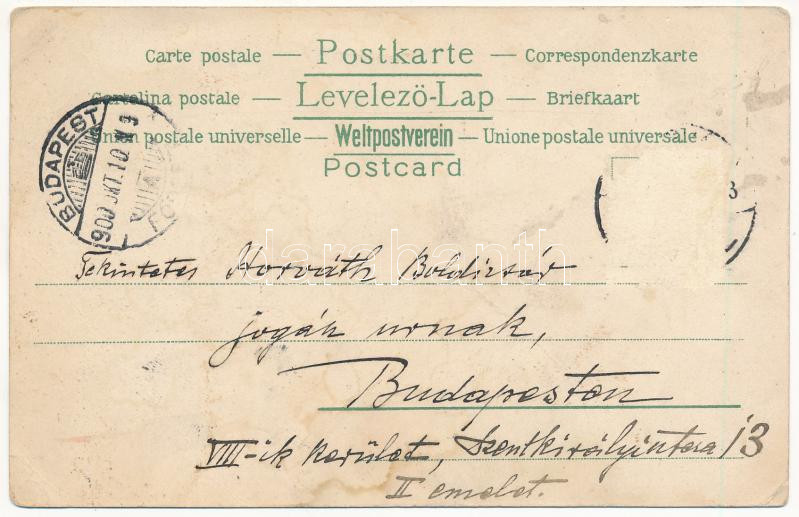 Carte postale — Postkarte — Correspondenzkarte
Cartolina postale — Levelező-Lap — Briefkaart
Union postale universelle — Weltpostverein — Unione postale universale
Postcard
BUDAPEST
900 OKT. 10
3
darabanth
Tekintetes Horváth Boldizsár
jogán urnak,
Budapesten
VIII-ik kerület, Szentkirályi utca 13
II emelet.